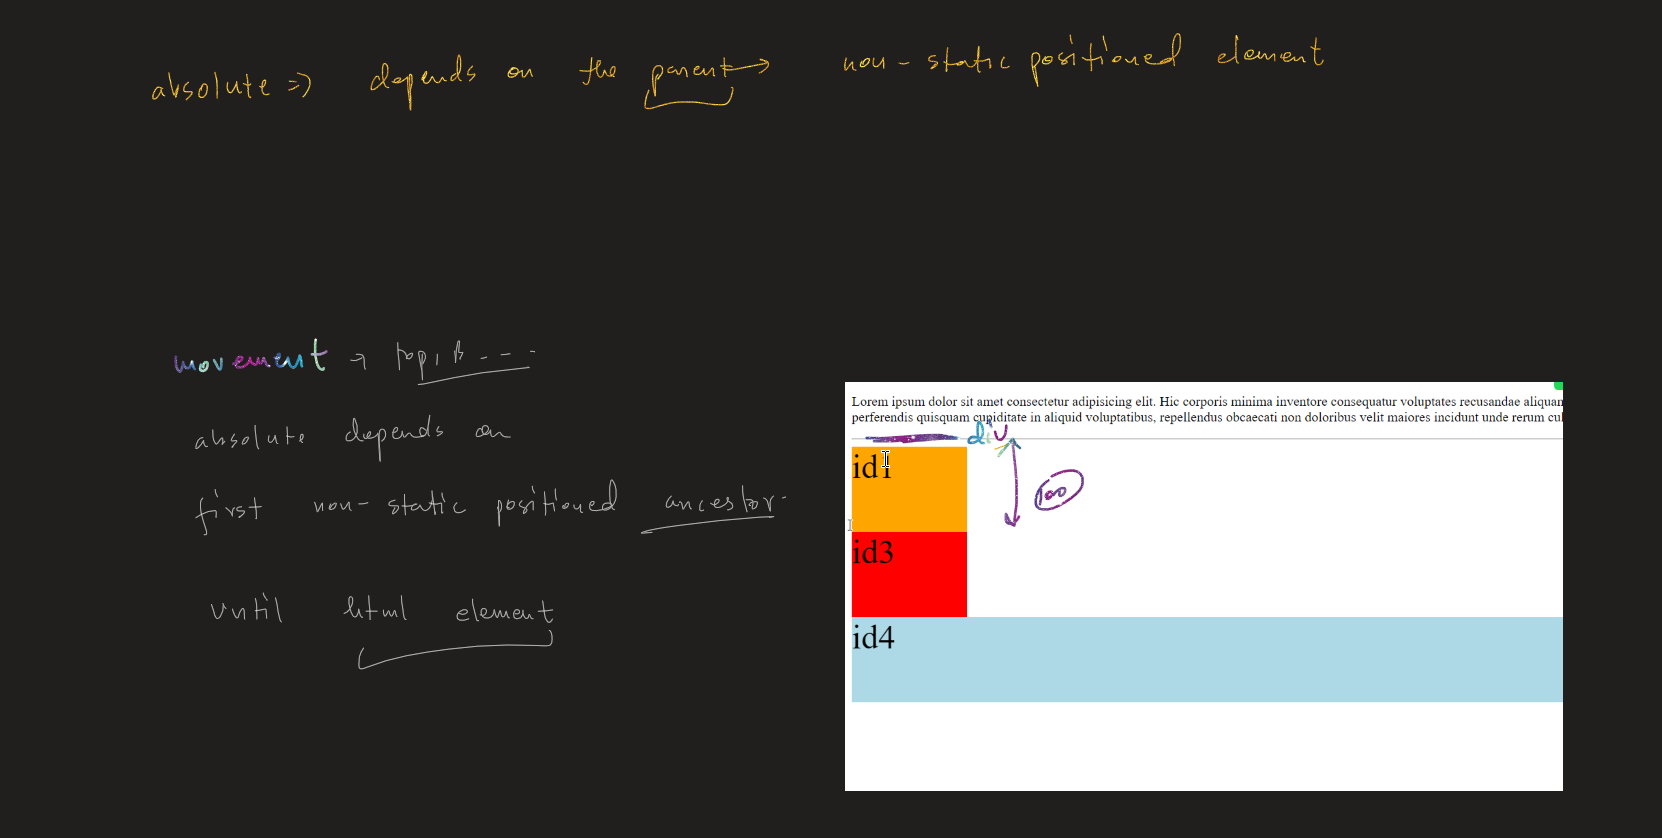 absolute => depends on the parent → non-static positioned element
movement → top, B - - - -
absolute depends on
first non-static positioned ancestor.
until html element
Lorem ipsum dolor sit amet consectetur adipisicing elit. Hic corporis minima inventore consequatur voluptates recusandae aliquam
perferendis quisquam cupiditate in aliquid voluptatibus, repellendus obcaecati non doloribus velit maiores incidunt unde rerum cul
div
id1
100
id3
id4